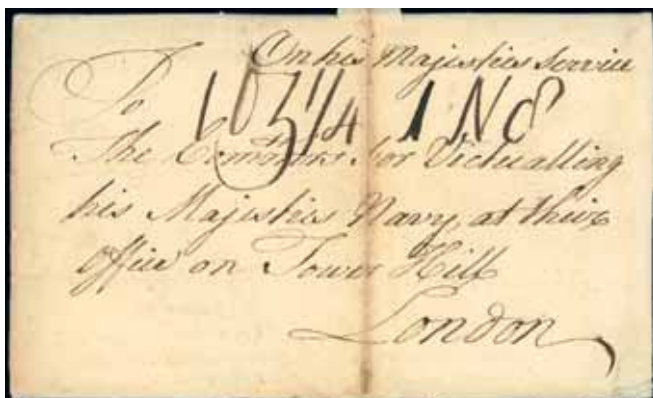 On his Majesties Service
To
1 oz 1/4
The Commrs for Victualling
his Majesties Navy, at their
Office on Tower Hill
London